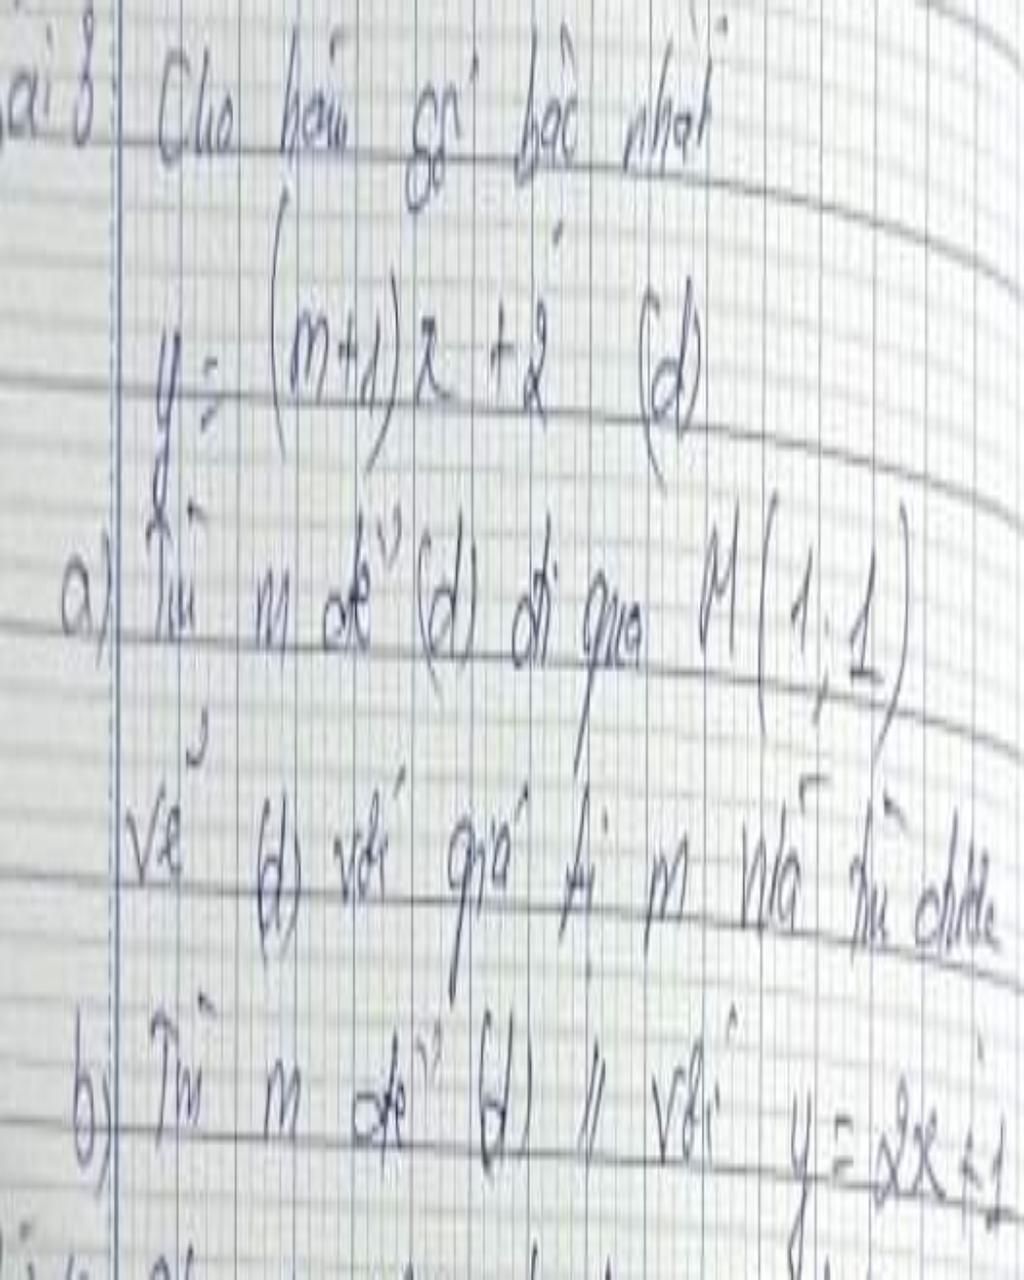 ài 3 Cho hàm số bậc nhất
y = (m+1)x + 2 (d)
a) Tìm m để (d) đi qua M(1;1)
Vẽ (d) với giá trị m vừa tìm được
b) Tìm m để (d) // với y = 2x+1